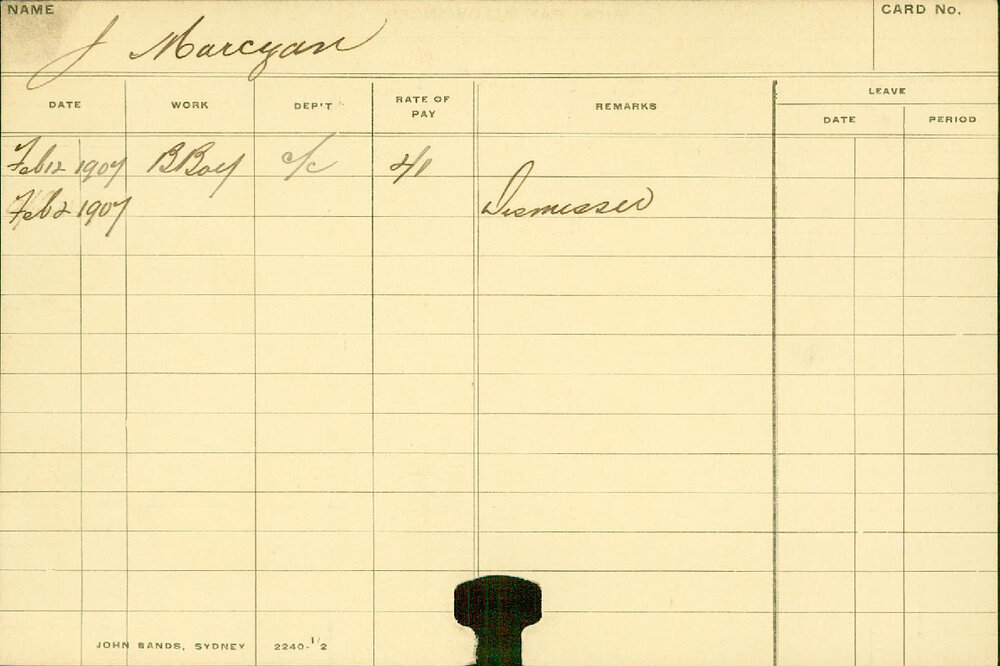 NAME
CARD No.
J Marcyan
DATE WORK DEP'T RATE OF PAY REMARKS LEAVE
DATE PERIOD
Feb 12 1907 B Boy c/c 2/1
Feb 2 1907 Dismissed
JOHN SANDS, SYDNEY 2240-1/2